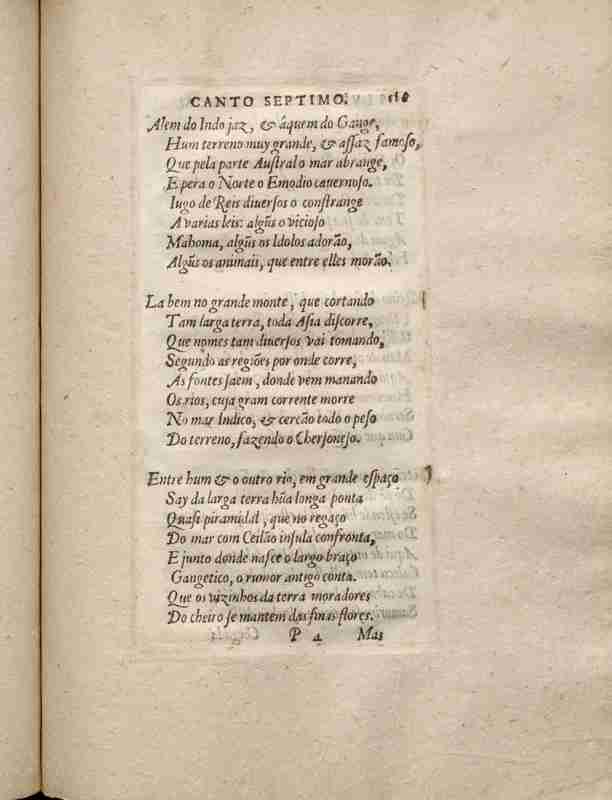 CANTO SEPTIMO. 116
Alem do Indo jaz, & áquem do Gange,
Hum terreno muy grande, & aſſaz famoſo,
Que pela parte Auſtral o mar abrange,
E pera o Norte o Emodio cauernoſo.
Iugo de Reis diuerſos o conſtrange
A varias leis: algũs o vicioſo
Mahoma, algũs os Idolos adorão,
Algũs os animais, que entre elles morão.
La bem no grande monte, que cortando
Tam larga terra, toda Aſia diſcorre,
Que nomes tam diuerſos vai tomando,
Segundo as regiões por onde corre,
As fontes ſaem, donde vem manando
Os rios, cuja gram corrente morre
No mar Indico, & cercão todo o peſo
Do terreno, fazendo o Cherſoneſo.
Entre hum & o outro rio, em grande eſpaço
Say da larga terra hũa longa ponta
Quaſi piramidal, que no regaço
Do mar com Ceilão inſula confronta,
E junto donde naſce o largo braço
Gangetico, o rumor antigo conta.
Que os vizinhos da terra moradores
Do cheiro ſe mantem das finas flores.
P 2 Mas